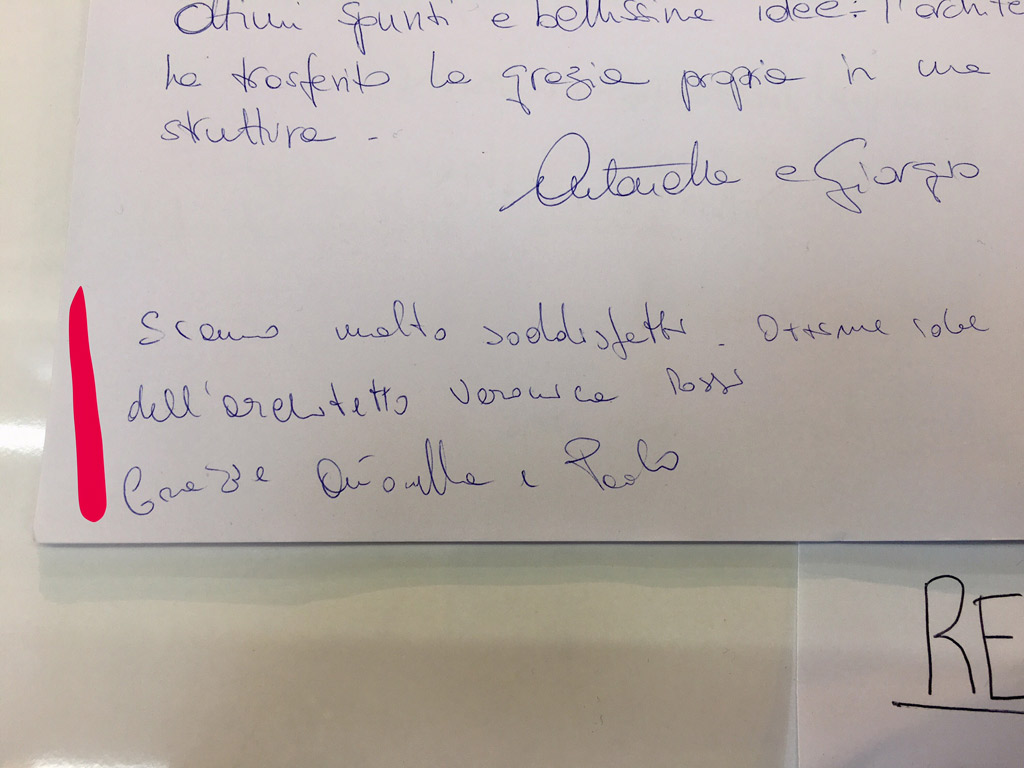 Ottimi spunti e bellissime idee: l'archite
ha trasferito la grazia propria in una
struttura -
Antonella e Giorgio
Siamo molto soddisfatti. Ottime idee
dell'architetto Veronica Rossi
Grazie Antonella e Paolo
RE